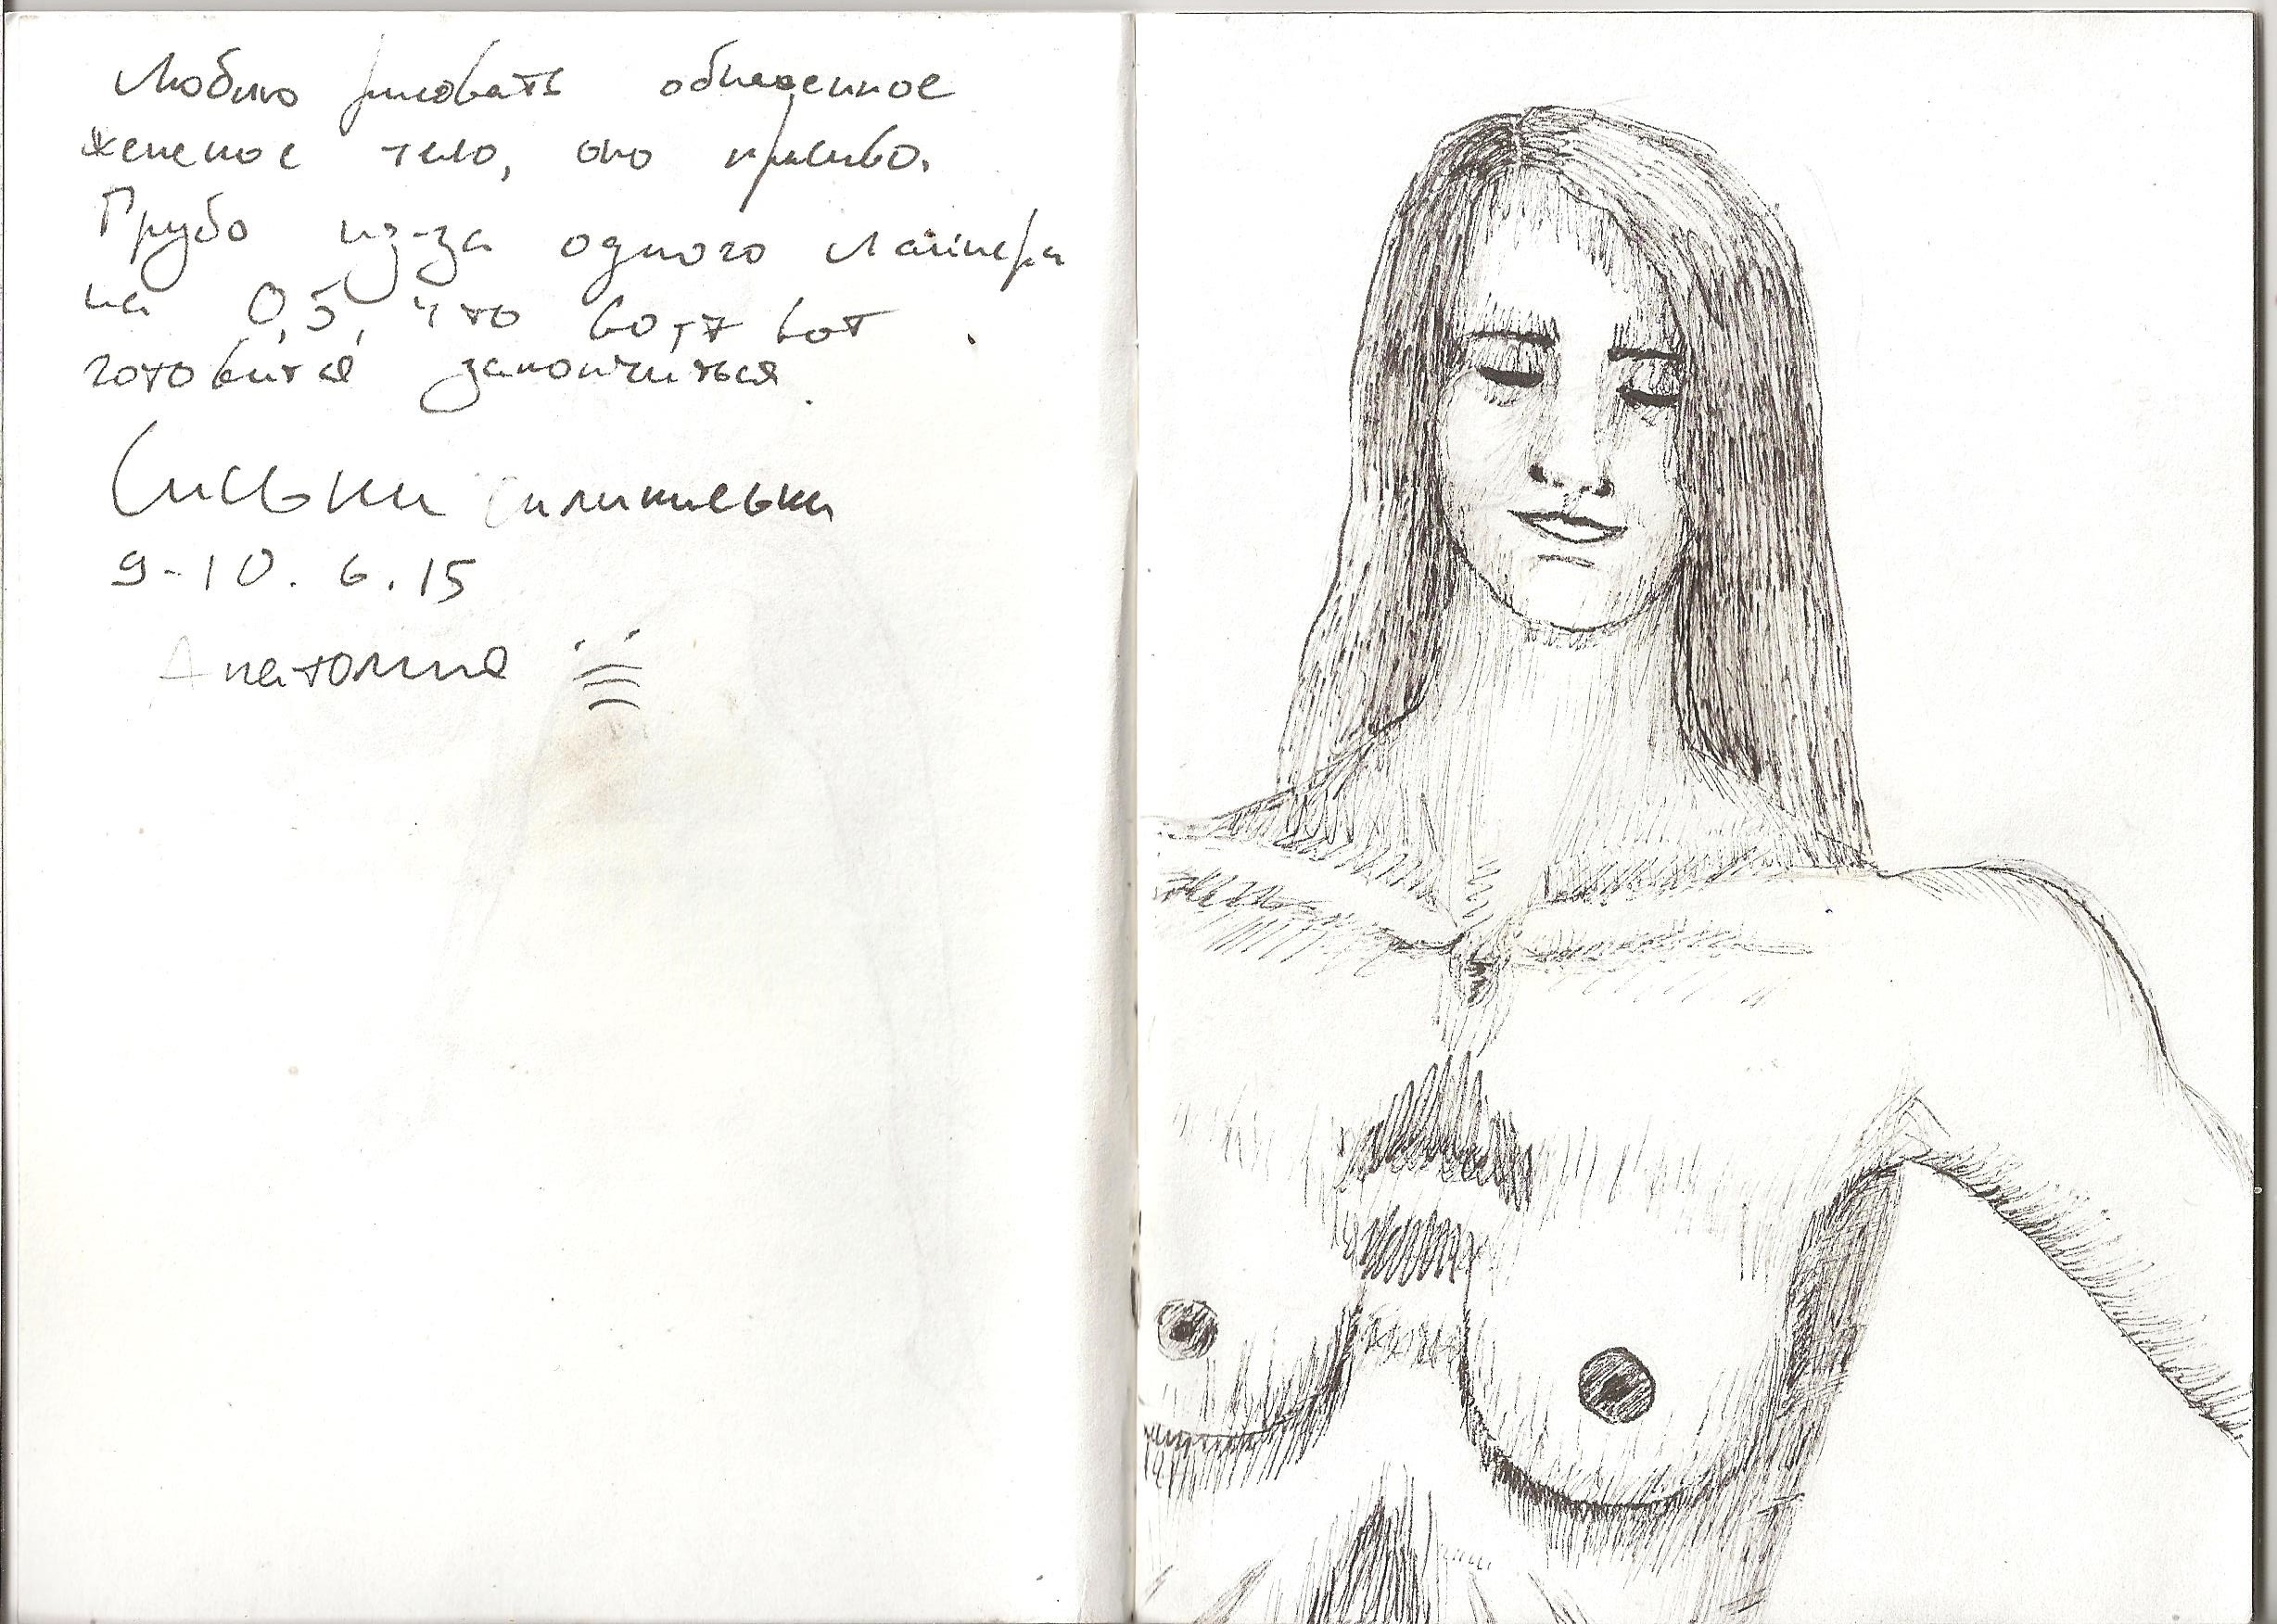 Люблю рисовать обнаженное
женское тело, оно красиво.
Грубо из-за одного лайнера
на 0,5, что вот вот
готовится закончиться.
Сиськи
9-10.6.15
Анатомия